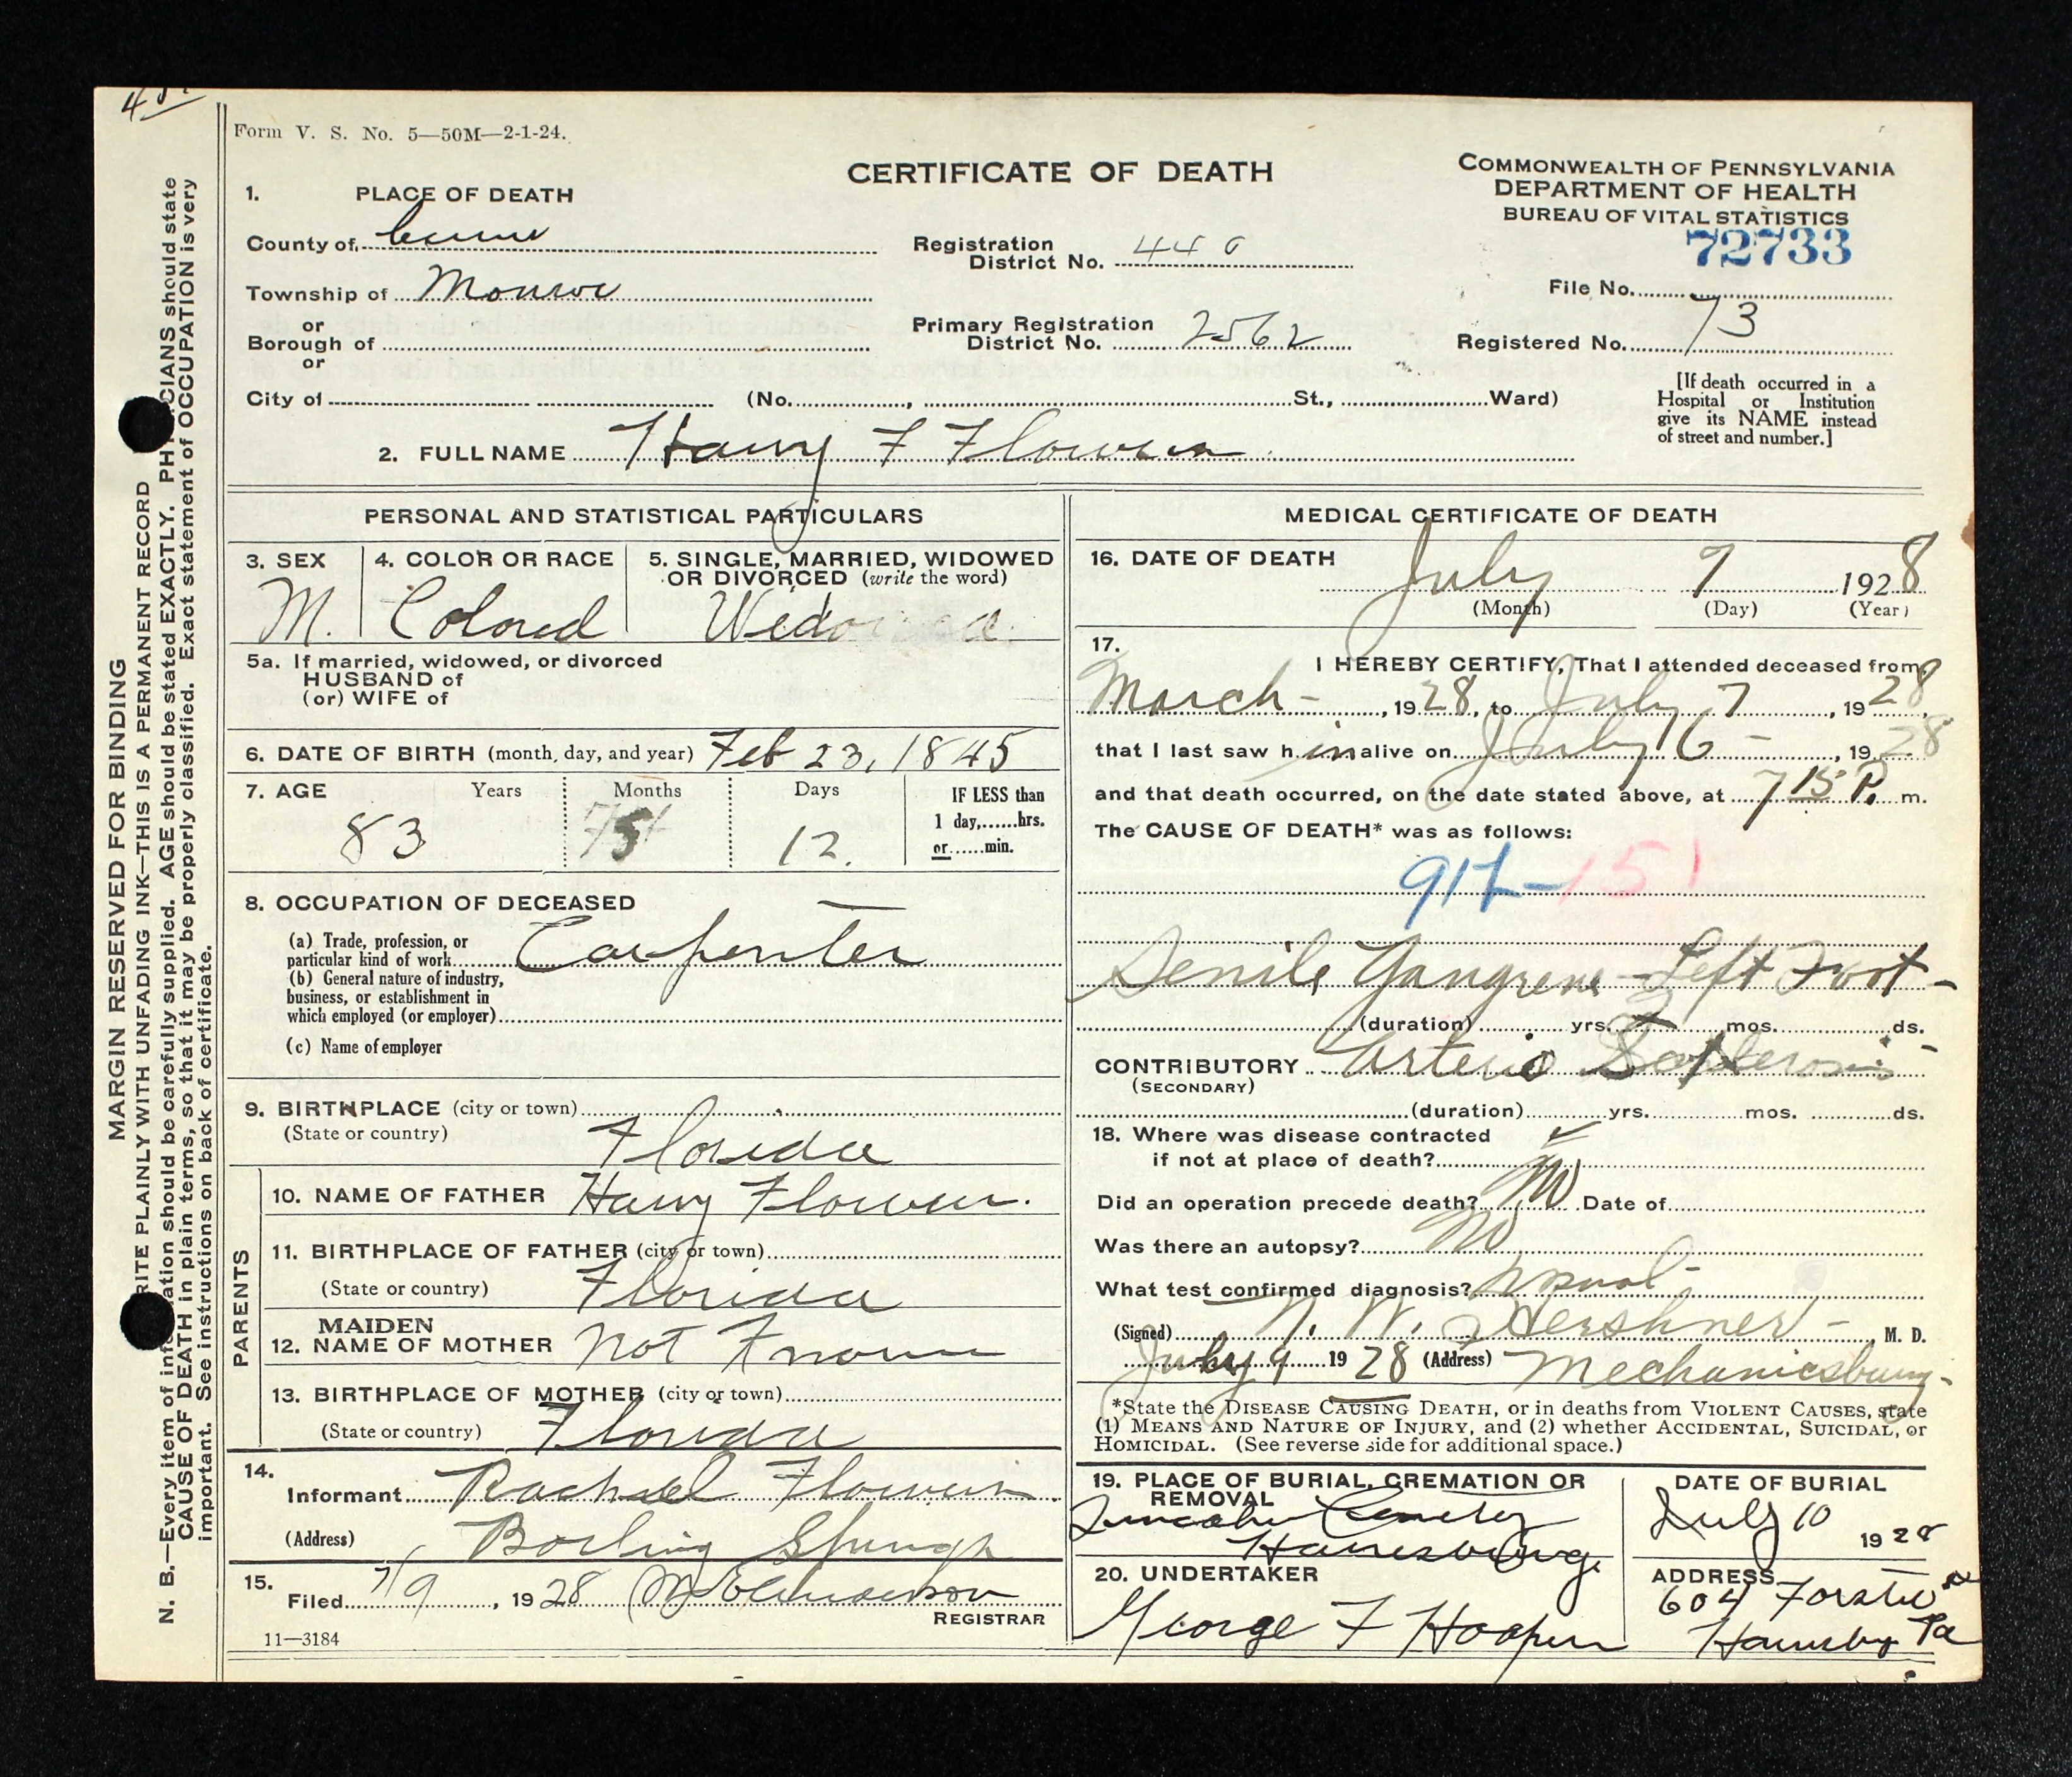 Form V. S. No. 5—50M—2-1-24.
CERTIFICATE OF DEATH
COMMONWEALTH OF PENNSYLVANIA
DEPARTMENT OF HEALTH
BUREAU OF VITAL STATISTICS
72733
File No.
Registered No. 73
[If death occurred in a
Hospital or Institution
give its NAME instead
of street and number.]
1. PLACE OF DEATH
County of
Township of Monroe
or
Borough of
or
City of (No. , St., Ward)
Registration
District No. 440
Primary Registration
District No. 2562
2. FULL NAME Harry F Flowers
PERSONAL AND STATISTICAL PARTICULARS
3. SEX
M.
4. COLOR OR RACE
Colored
5. SINGLE, MARRIED, WIDOWED
OR DIVORCED (write the word)
Widowed
5a. If married, widowed, or divorced
HUSBAND of
(or) WIFE of
6. DATE OF BIRTH (month, day, and year) Feb 23, 1845
7. AGE Years Months Days
83 5 12.
IF LESS than
1 day,......hrs.
or......min.
8. OCCUPATION OF DECEASED
(a) Trade, profession, or
particular kind of work Carpenter
(b) General nature of industry,
business, or establishment in
which employed (or employer)
(c) Name of employer
9. BIRTHPLACE (city or town)
(State or country) Florida
PARENTS
10. NAME OF FATHER Harry Flowers.
11. BIRTHPLACE OF FATHER (city or town)
(State or country) Florida
12. MAIDEN NAME OF MOTHER Not Known
13. BIRTHPLACE OF MOTHER (city or town)
(State or country) Florida
14.
Informant Rachael Flowers
(Address) Boiling Springs
15.
Filed 7/9, 1928
REGISTRAR
11—3184
MEDICAL CERTIFICATE OF DEATH
16. DATE OF DEATH
July 7 1928
(Month) (Day) (Year)
17.
I HEREBY CERTIFY, That I attended deceased from
March - , 1928, to July 7, 1928
that I last saw h im alive on July 6 - , 1928
and that death occurred, on the date stated above, at 7 15 P. m.
The CAUSE OF DEATH* was as follows:
151
Senile Gangrene - Left Foot -
(duration) yrs. mos. ds.
CONTRIBUTORY Arterio Sclerosis
(SECONDARY)
(duration) yrs. mos. ds.
18. Where was disease contracted
if not at place of death?
Did an operation precede death? No Date of
Was there an autopsy? No
What test confirmed diagnosis?
(Signed) N. W. Hershner - , M. D.
July 9 1928 (Address) Mechanicsburg -
*State the DISEASE CAUSING DEATH, or in deaths from VIOLENT CAUSES, state
(1) MEANS AND NATURE OF INJURY, and (2) whether ACCIDENTAL, SUICIDAL, or
HOMICIDAL. (See reverse side for additional space.)
19. PLACE OF BURIAL, CREMATION OR
REMOVAL
Lincoln Cemetery
Harrisburg
DATE OF BURIAL
July 10 1928
20. UNDERTAKER
George F Hooper
ADDRESS
604 Forster St
Harrisburg Pa
MARGIN RESERVED FOR BINDING
RITE PLAINLY WITH UNFADING INK—THIS IS A PERMANENT RECORD
N. B.—Every item of information should be carefully supplied. AGE should be stated EXACTLY. PHYSICIANS should state
CAUSE OF DEATH in plain terms, so that it may be properly classified. Exact statement of OCCUPATION is very
important. See instructions on back of certificate.